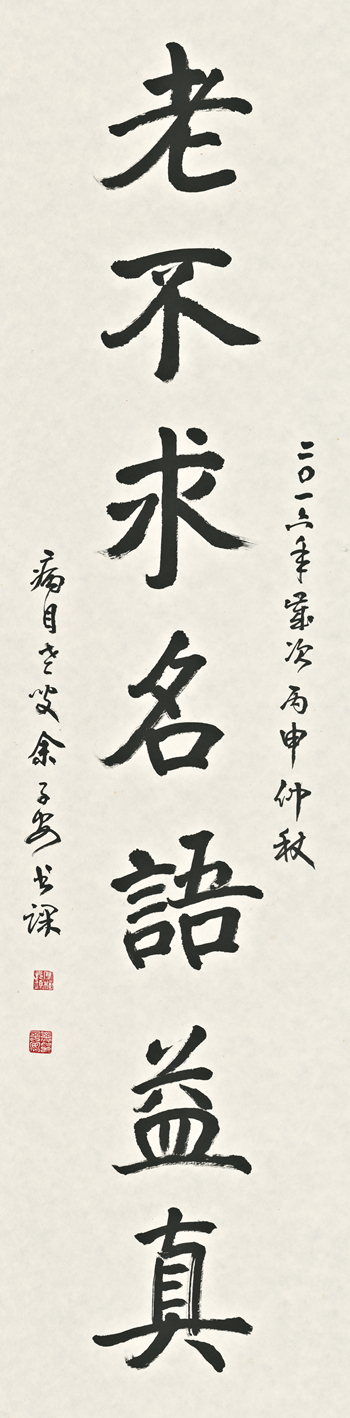 二〇一六年歲次丙申仲秋
老不求名語益真
病目老叟余子安書課